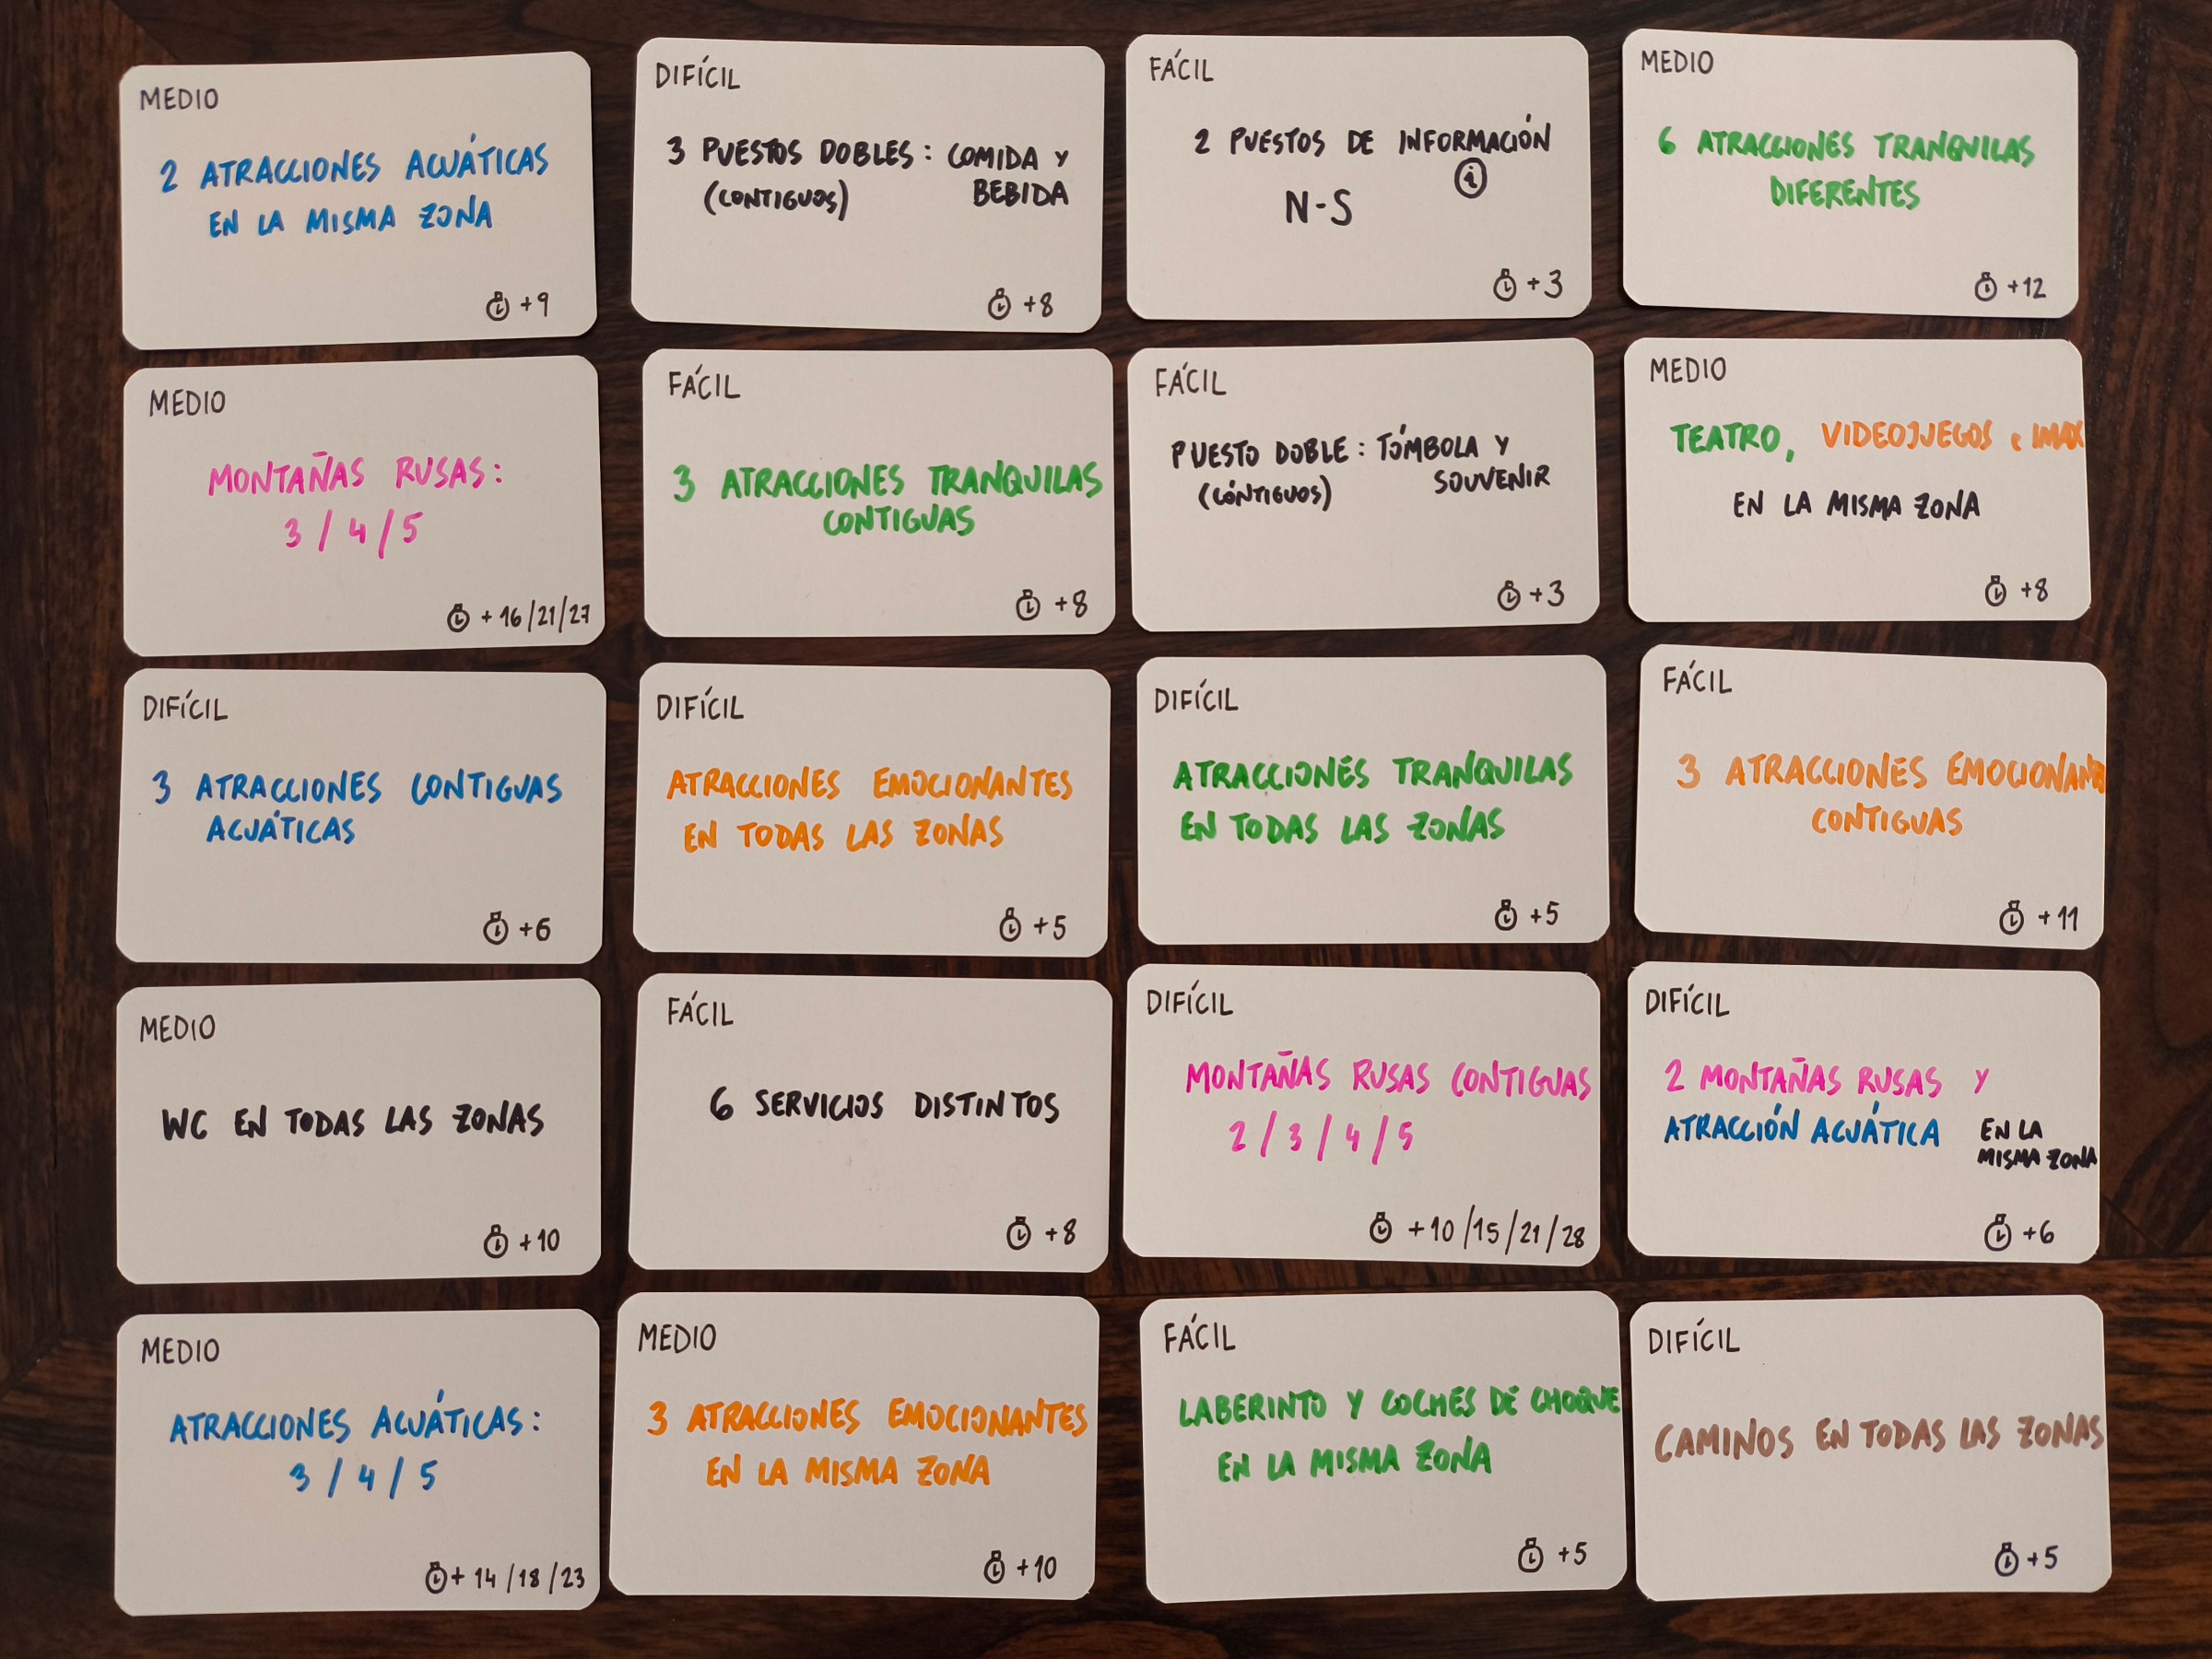 MEDIO
2 ATRACCIONES ACUÁTICAS
EN LA MISMA ZONA
+9
DIFÍCIL
3 PUESTOS DOBLES: COMIDA Y
(CONTIGUOS) BEBIDA
+8
FÁCIL
2 PUESTOS DE INFORMACIÓN
i
N-S
+3
MEDIO
6 ATRACCIONES TRANQUILAS
DIFERENTES
+12
MEDIO
MONTAÑAS RUSAS:
3 / 4 / 5
+ 16/21/27
FÁCIL
3 ATRACCIONES TRANQUILAS
CONTIGUAS
+8
FÁCIL
PUESTO DOBLE: TÓMBOLA Y
(CONTIGUOS) SOUVENIR
+3
MEDIO
TEATRO, VIDEOJUEGOS e IMAX
EN LA MISMA ZONA
+8
DIFÍCIL
3 ATRACCIONES CONTIGUAS
ACUÁTICAS
+6
DIFÍCIL
ATRACCIONES EMOCIONANTES
EN TODAS LAS ZONAS
+5
DIFÍCIL
ATRACCIONES TRANQUILAS
EN TODAS LAS ZONAS
+5
FÁCIL
3 ATRACCIONES
CONTIGUAS
+11
MEDIO
WC EN TODAS LAS ZONAS
+10
FÁCIL
6 SERVICIOS DISTINTOS
+8
DIFÍCIL
MONTAÑAS RUSAS CONTIGUAS
2 / 3 / 4 / 5
+10/15/21/28
DIFÍCIL
2 MONTAÑAS RUSAS Y
ATRACCIÓN ACUÁTICA EN LA
MISMA ZONA
+6
MEDIO
ATRACCIONES ACUÁTICAS:
3 / 4 / 5
+ 14/18/23
MEDIO
3 ATRACCIONES EMOCIONANTES
EN LA MISMA ZONA
+10
FÁCIL
LABERINTO Y COCHES DE CHOQUE
EN LA MISMA ZONA
+5
DIFÍCIL
CAMINOS EN TODAS LAS ZONAS
+5